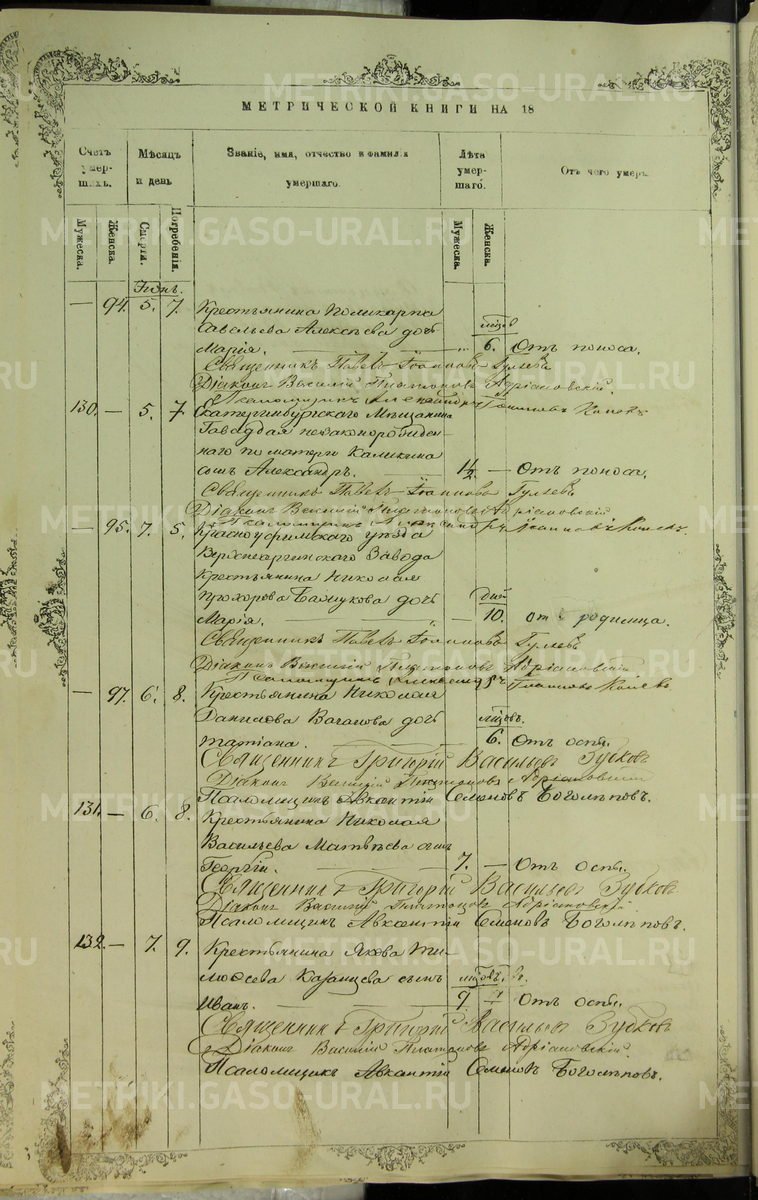 МЕТРИЧЕСКОЙ КНИГИ НА 18
Счетъ умер-шихъ. Мѣсяцъ и день Званіе, имя, отчество и фамилія умершаго. Лѣта умер-шаго. Отъ чего умеръ.
Мужеска. Женска. Смерти. Погребенія. Мужеска. Женска.
Іюнь.
— 94. 5. 7. Крестьянина Поликарпа
Савельева Алексѣева дочь мѣсяц.
Марія. — 6. Отъ поноса.
Священникъ Павелъ Іоанновъ Гуляевъ
Діаконъ Василій Платоновъ Адріановскій.
Псаломщикъ Александръ Іоанновъ
130. — 5. 7. Екатеринбургскаго Мѣщанина
незаконорожден-
наго по матери Каликина
сынъ Александръ. — 1½ — Отъ поноса.
Священникъ Павелъ Іоанновъ Гуляевъ
Діаконъ Василій Платоновъ Адріановскій
Псаломщикъ Александръ Іоанновъ
— 95. 7. 5. Красноуфимскаго уѣзда
Верхнесергинскаго Завода
Крестьянина Николая
Прохорова дочь дній
Марія. — 10. отъ родимца.
Священникъ Павелъ Іоанновъ Гуляевъ
Діаконъ Василій Платоновъ Адріановскій
Псаломщикъ Александръ Іоанновъ
— 97. 6. 8. Крестьянина Николая
Данилова дочь мѣсяцъ.
Татіана. — 6. Отъ оспы.
Священникъ Григорій Васильевъ Зубковъ
Діаконъ Василій Платоновъ Адріановскій
Псаломщикъ Авксентій Семеновъ Боголѣповъ.
131. — 6. 8. Крестьянина Николая
Васильева Матвѣева сынъ
Георгій. — 7. — Отъ оспы.
Священникъ Григорій Васильевъ Зубковъ
Діаконъ Василій Платоновъ Адріановскій
Псаломщикъ Авксентій Семеновъ Боголѣповъ.
132. — 7. 9. Крестьянина Якова Ти-
моѳеева Казанцева сынъ мѣсяцевъ.
Иванъ. — 9 Отъ оспы.
Священникъ Григорій Васильевъ Зубковъ
Діаконъ Василій Платоновъ Адріановскій.
Псаломщикъ Авксентій Семеновъ Боголѣповъ.
METRIKI.GASO-URAL.RU